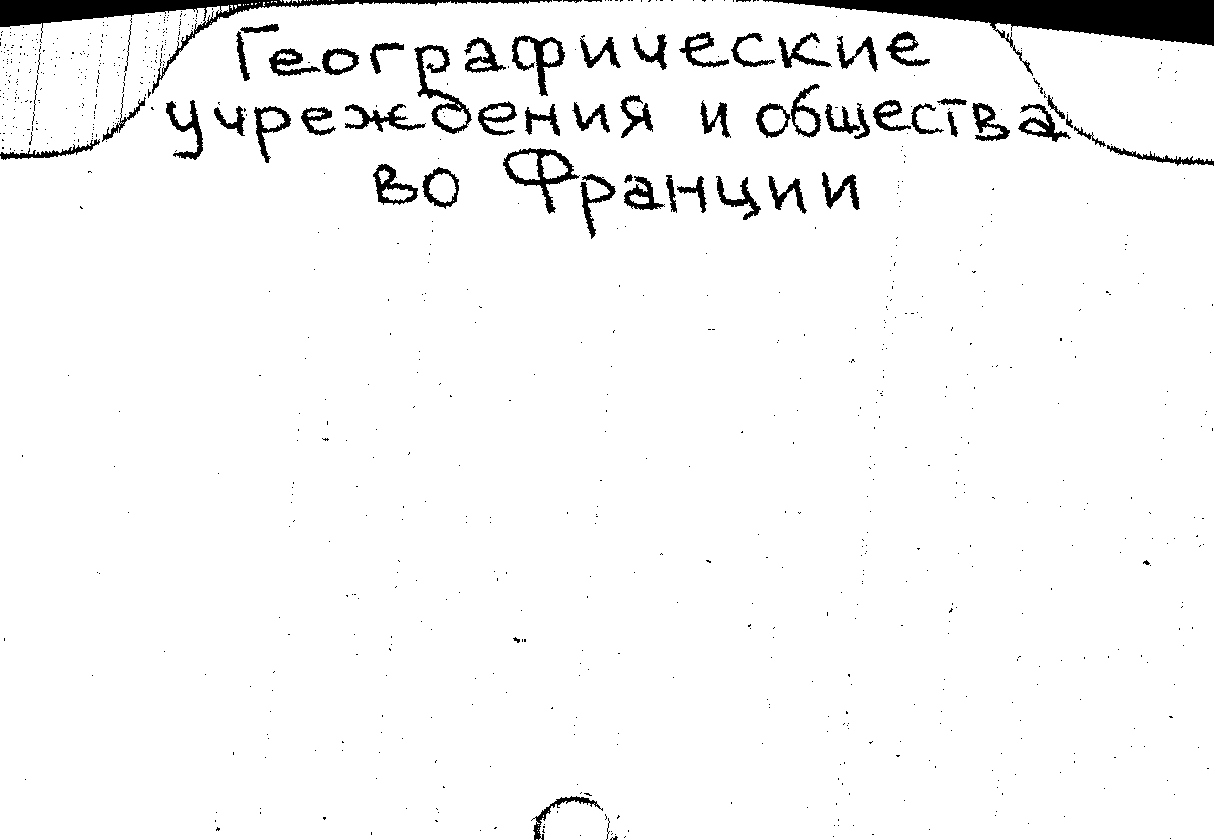 Географические
учреждения и общества
во Франции